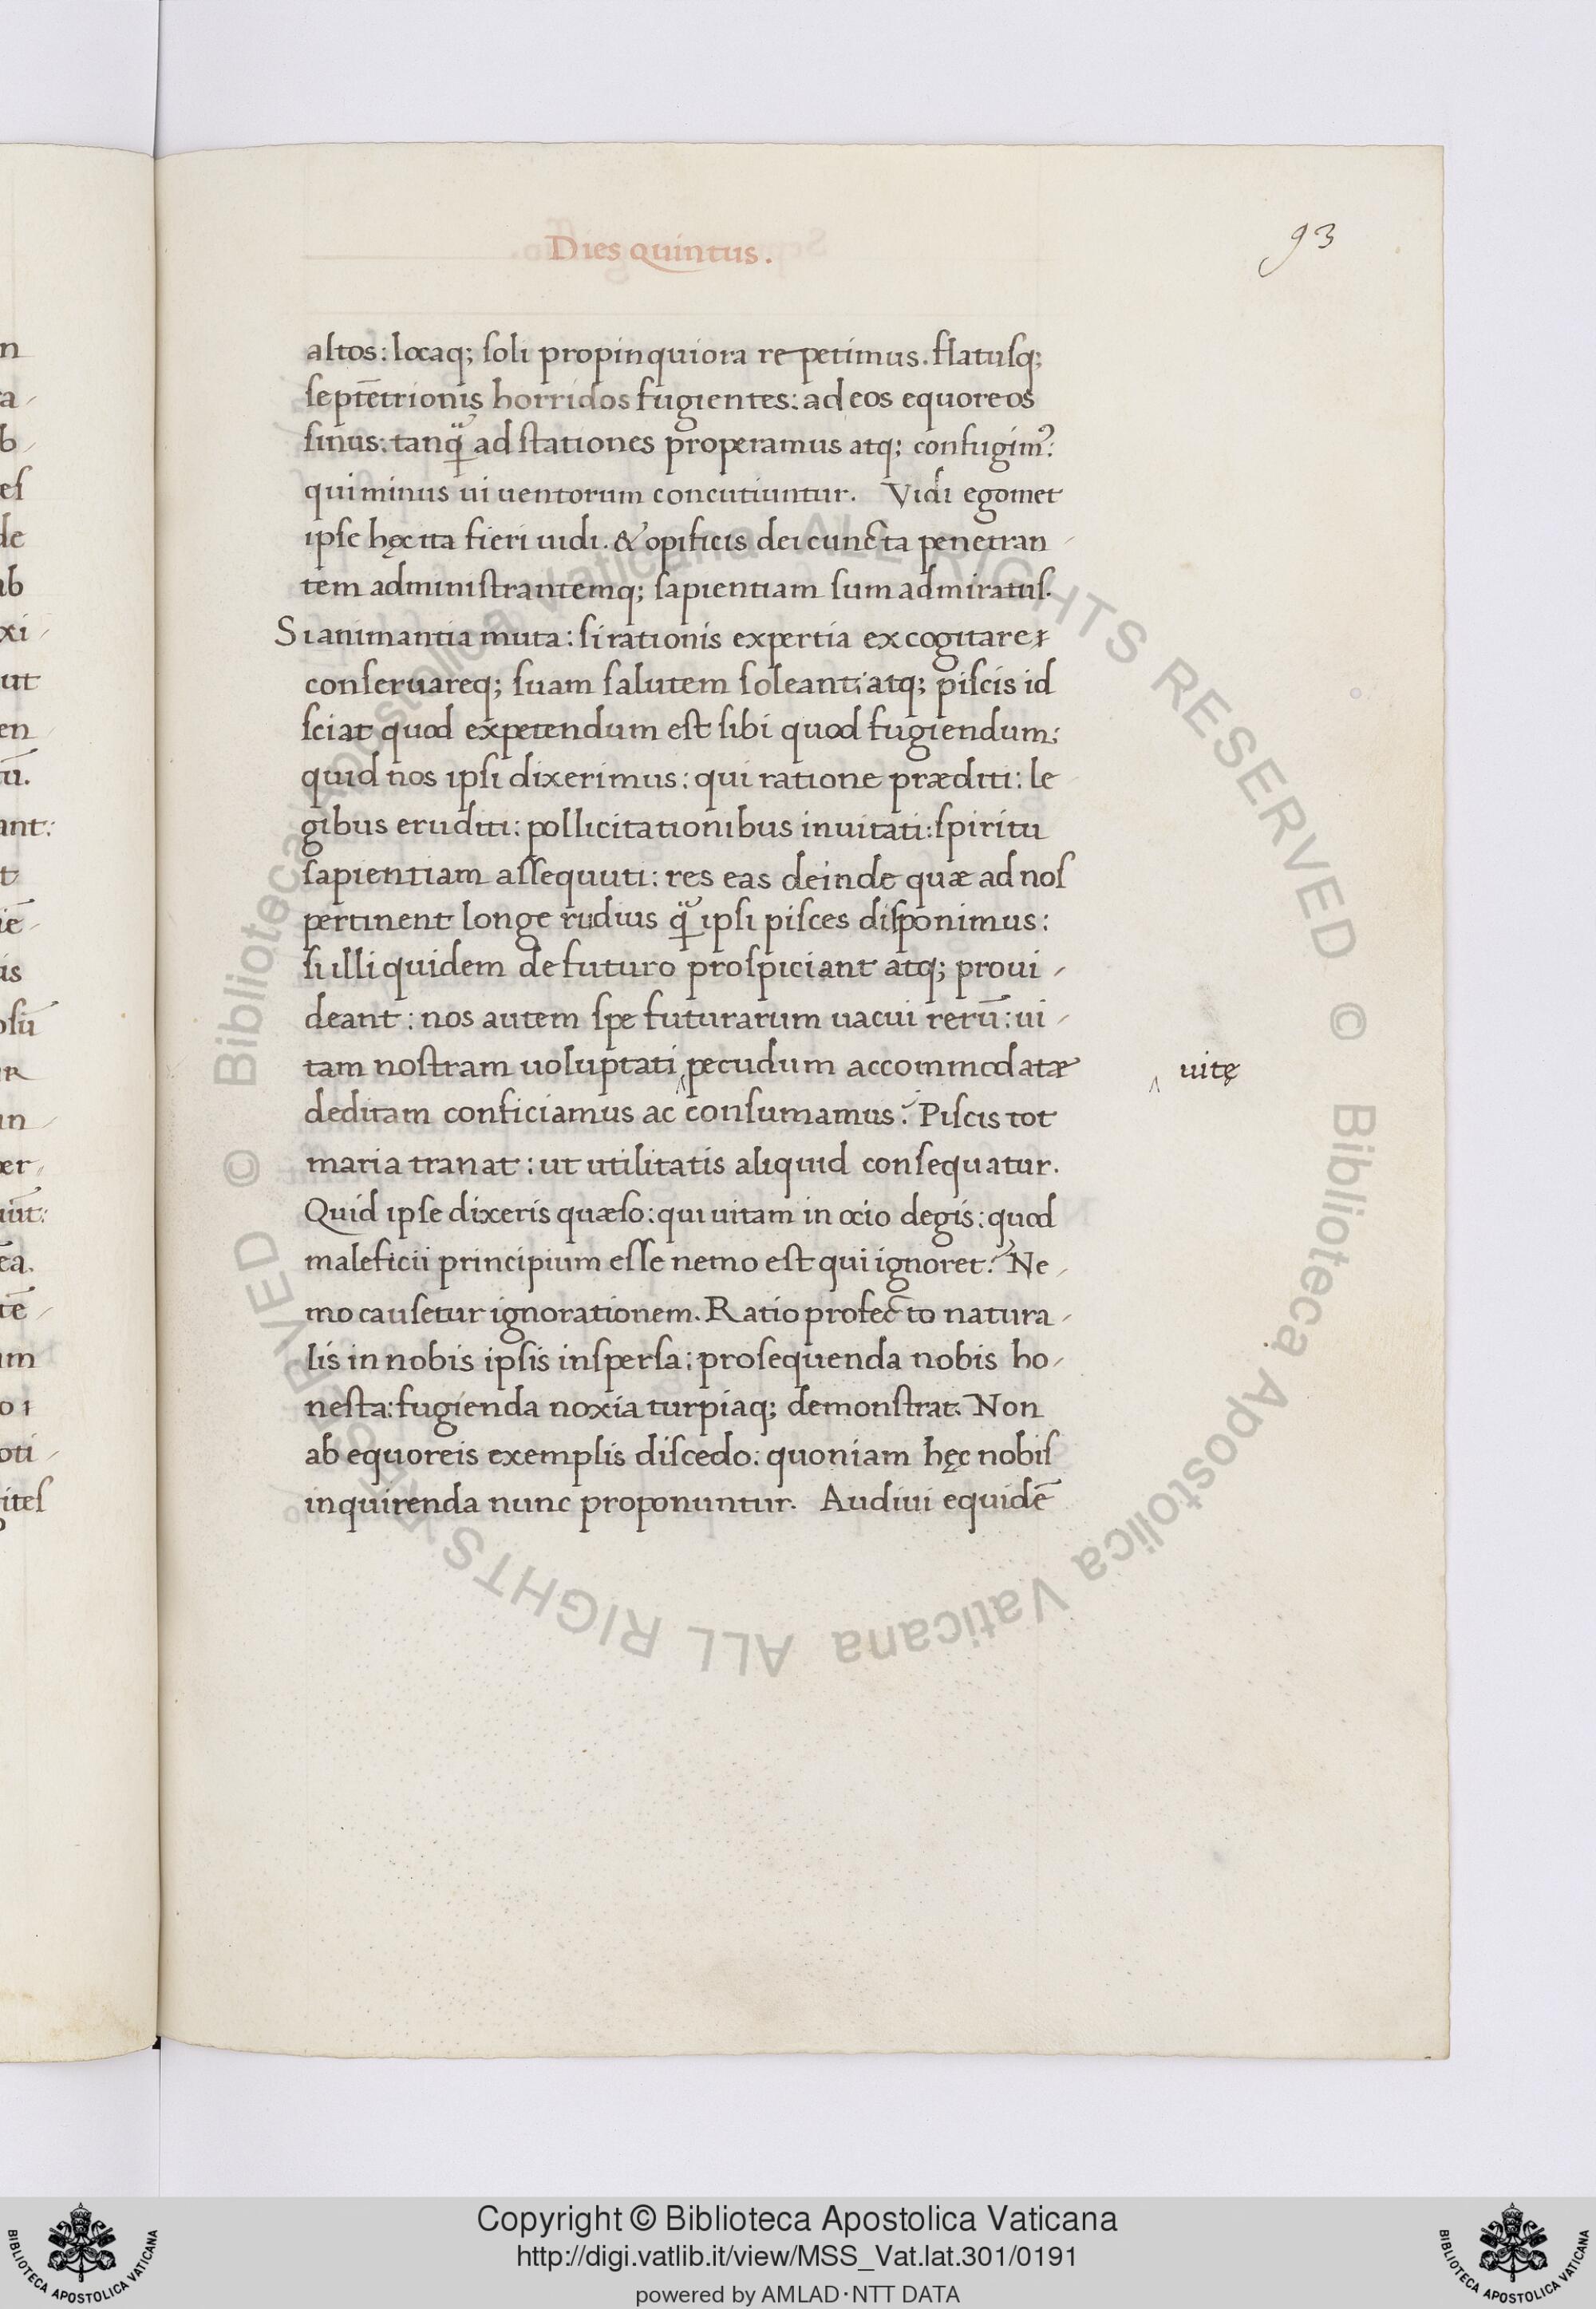 Dies quintus.
93
altos: locaq; soli propinquiora repetimus. flatusq;
septētrionis horridos fugientes: ad eos equoreos
sinus: tanq̃ ad stationes properamus atq; confugimꝰ:
qui minus ui uentorum concutiuntur. Vidi egomet
ipse hęc ita fieri uidi. & opificis dei cuncta penetran
tem administrantemq; sapientiam sum admiratus.
Si animantia muta: si rationis expertia excogitare:
conseruareq; suam salutem soleant: atq; piscis id
sciat quod expetendum est sibi quod fugiendum:
quid nos ipsi dixerimus: qui ratione præditi: le
gibus eruditi: pollicitationibus inuitati: spiritu
sapientiam assequuti: res eas deinde quæ ad nos
pertinent longe rudius q̃ ipsi pisces disponimus:
si illi quidem de futuro prospiciant atq; proui
deant: nos autem spe futurarum uacui rerū: ui
tam nostram uoluptati ‸ pecudum accommodatæ
‸ uitę
deditam conficiamus ac consumamus? Piscis tot
maria tranat: ut utilitatis aliquid consequatur.
Quid ipse dixeris quæso: qui uitam in ocio degis: quod
maleficii principium esse nemo est qui ignoret? Ne
mo causetur ignorationem. Ratio profecto natura
lis in nobis ipsis inspersa: prosequenda nobis ho
nesta: fugienda noxia turpiaq; demonstrat. Non
ab equoreis exemplis discedo: quoniam hęc nobis
inquirenda nunc proponuntur. Audiui equidē
n
a
b
es
de
ab
xi
ut
en
ū.
ant:
t
iē
is
osū
R
in
er
iūt:
ēa.
tē
um
oti
ites
© Biblioteca Apostolica Vaticana ALL RIGHTS RESERVED
© Biblioteca Apostolica Vaticana ALL RIGHTS RESERVED
Copyright © Biblioteca Apostolica Vaticana
http://digi.vatlib.it/view/MSS_Vat.lat.301/0191
powered by AMLAD·NTT DATA
BIBLIOTECA APOSTOLICA VATICANA
BIBLIOTECA APOSTOLICA VATICANA